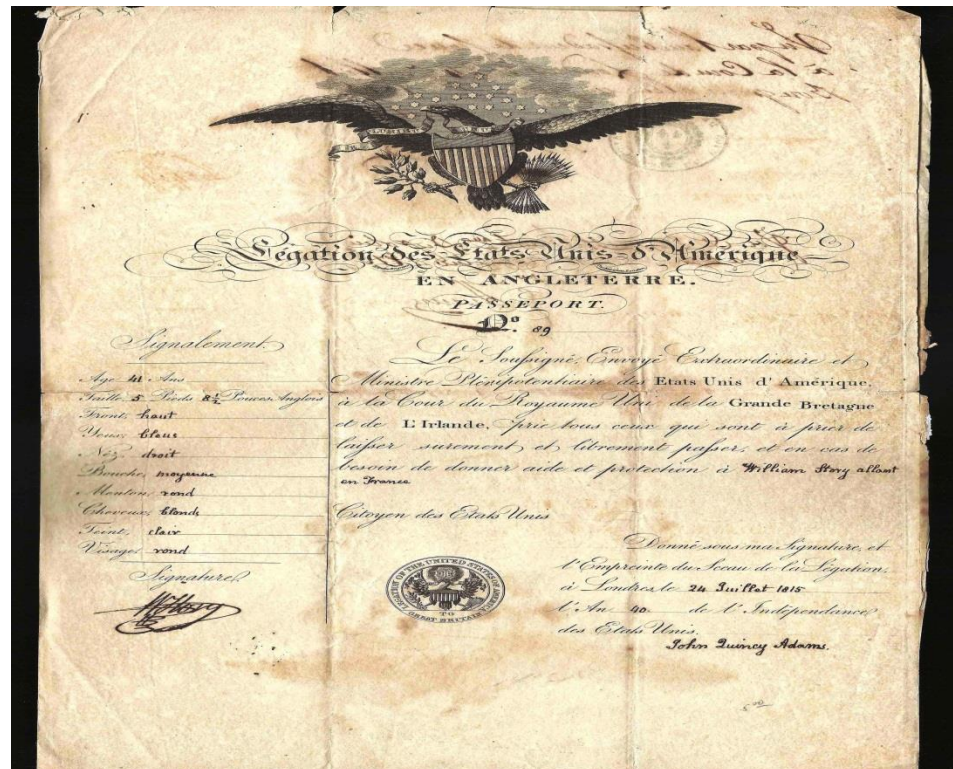 Légation des Etats Unis d'Amérique
EN ANGLETERRE.
PASSEPORT.
No. 89
Signalement
Age 41 Ans
Taille 5 Pieds 8½ Pouces Anglais
Front, haut
Yeux, bleus
Néz, droit
Bouche, moyenne
Menton, rond
Cheveux, blonds
Teint, clair
Visage, rond
Signature
Le Soussigné, Envoyé Extraordinaire et
Ministre Plénipotentiaire des Etats Unis d'Amérique,
à la Cour du Royaume Uni de la Grande Bretagne
et de L'Irlande, prie tous ceux qui sont à prier de
laisser surement et librement passer, et en cas de
besoin de donner aide et protection à William Story allant
en France
Citoyen des Etats Unis
Donné sous ma Signature, et
l'Empreinte du Sceau de la Légation,
à Londres, le 24 Juillet 1815
l'An 40. de l'Indépendance
des Etats Unis.
John Quincy Adams.
LEGATION OF THE UNITED STATES OF AMERICA
TO
GREAT BRITAIN